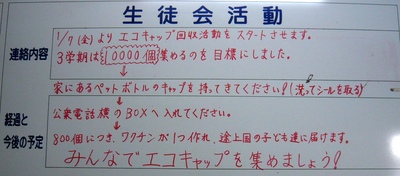 生徒会活動
連絡内容
1/7(金)よりエコキャップ回収活動をスタートさせます。
3学期は10000個集めるのを目標にしました。
家にあるペットボトルのキャップを持ってきてください!(洗ってシールを取る)
経過と
今後の予定
公衆電話横のBOXへ入れてください。
800個につき、ワクチンが1つ作れ、途上国の子ども達に届けます。
みんなでエコキャップを集めましょう!